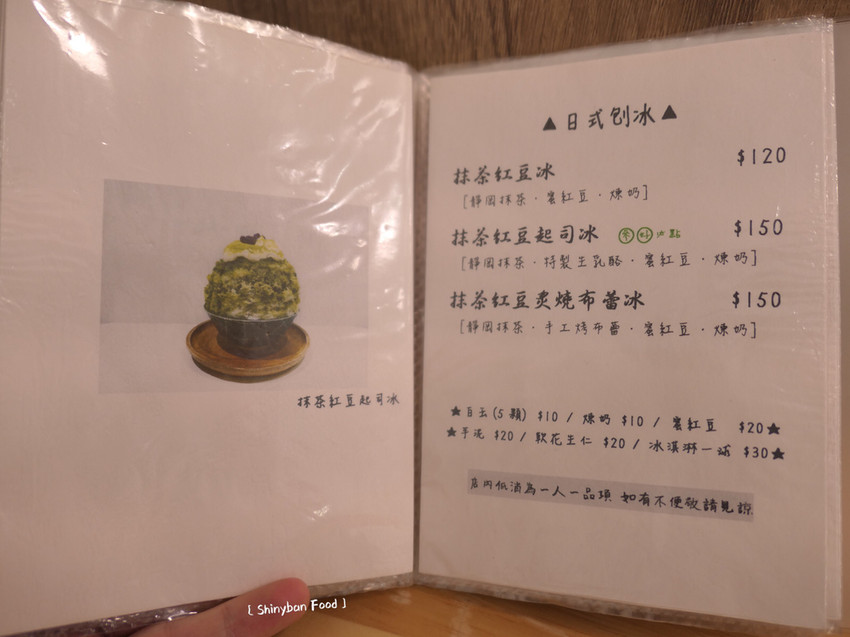 抹茶紅豆起司冰
▲日式刨冰▲
抹茶紅豆冰 $120
[靜岡抹茶·蜜紅豆·煉奶]
抹茶紅豆起司冰 $150
[靜岡抹茶·特製生乳酪·蜜紅豆·煉奶]
抹茶紅豆炙燒布蕾冰 $150
[靜岡抹茶·手工烤布蕾·蜜紅豆·煉奶]
★白玉(5顆) $10 / 煉奶 $10 / 蜜紅豆 $20★
★芋泥 $20 / 軟花生仁 $20 / 冰淇淋一球 $30★
店內低消為一人一品項 如有不便敬請見諒
[ Shinyban Food ]